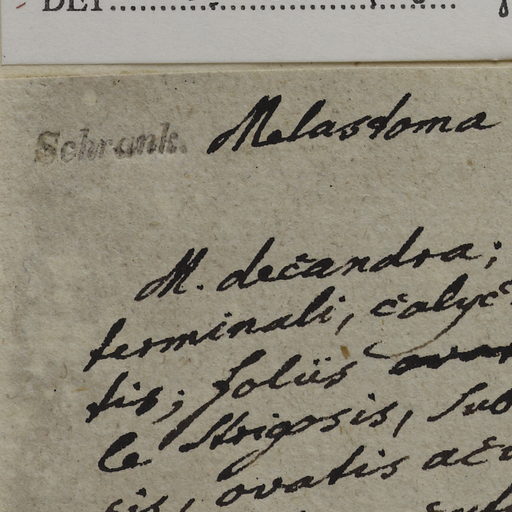 DET.
Schrank. Melastoma
M. decandra;
terminali, calyc
tis; foliis
le strigosis, sub
sis, ovatis acu